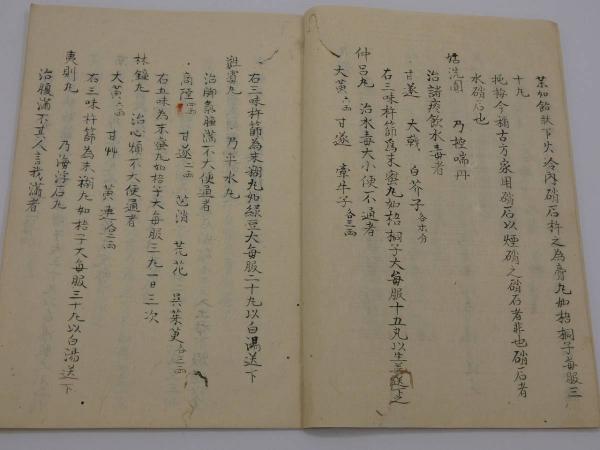 葉如飴狀下火冷內硝石杵之為膏丸如梧桐子每服三
十丸
挽梅今稱古方家用硝石以煙硝之硝石者非也硝石者
水硝石也
姑洗圓 乃控喘丹
治諸痰飲水毒者
甘遂 大戟 白芥子各等分
右三味杵篩為末蜜丸如梧桐子大每服十五丸以生姜送之
仲呂丸 治水毒大小便不通者
大黃二兩 甘遂 牽牛子各三兩
右三味杵篩為末糊丸如綠豆大每服二十丸以白湯送下
蕤賓丸 乃平水丸
治腳氣腫滿不大便通者
商陸四兩 甘遂二兩 芒消 芫花 吳茱萸各二兩
右五味為末蜜丸如梧子大每服三丸一日三次
林鐘丸 治心煩不大便通者
大黃二兩 甘艸 黃連各三兩
右三味杵篩為末糊丸如梧子大每服三十丸以白湯送下
夷則丸 乃海浮石丸
治腹滿不其人言我滿者